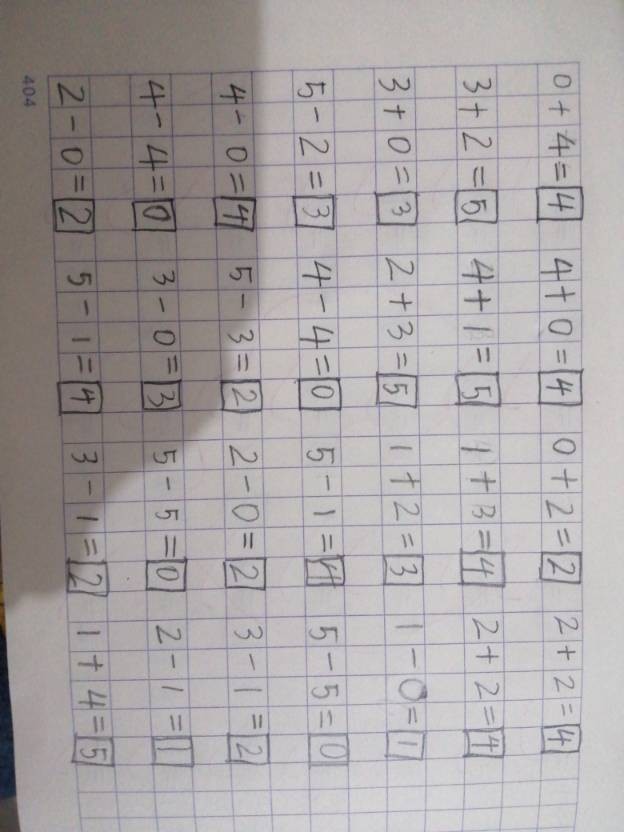 0+4=4 4+0=4 0+2=2 2+2=4
3+2=5 4+1=5 1+3=4 2+2=4
3+0=3 2+3=5 1+2=3 1-0=1
5-2=3 4-4=0 5-1=4 5-5=0
4-0=4 5-3=2 2-0=2 3-1=2
4-4=0 3-0=3 5-5=0 2-1=1
2-0=2 5-1=4 3-1=2 1+4=5
404